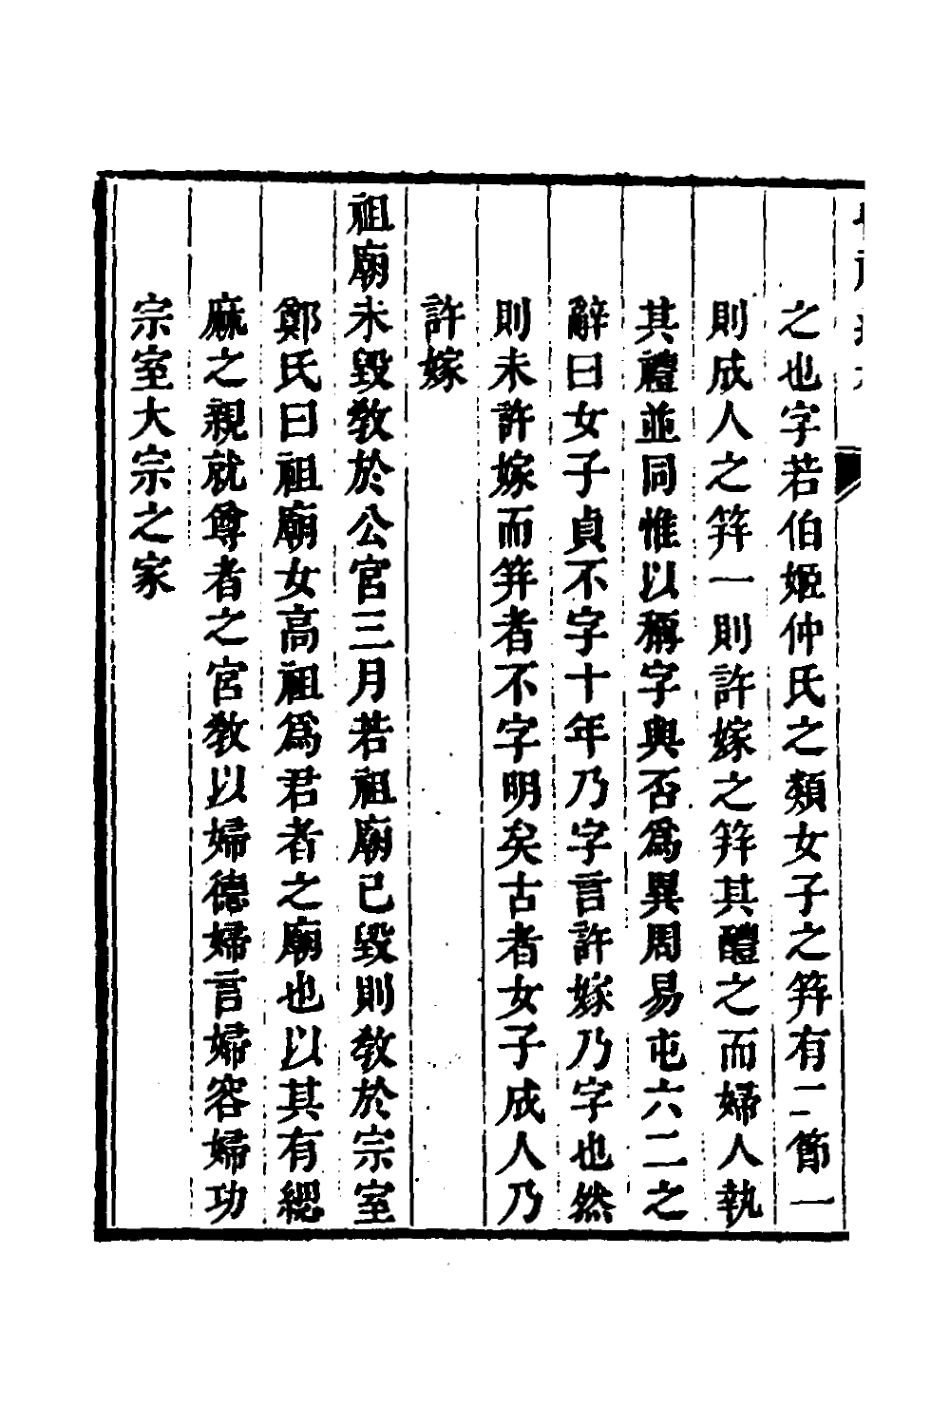 之也字若伯姬仲氏之類女子之笄有二節一
則成人之笄一則許嫁之笄其醴之而婦人執
其禮並同惟以稱字與否爲異周易屯六二之
辭曰女子貞不字十年乃字言許嫁乃字也然
則未許嫁而笄者不字明矣古者女子成人乃
許嫁
祖廟未毀敎於公宮三月若祖廟已毀則敎於宗室
鄭氏曰祖廟女高祖爲君者之廟也以其有緦
麻之親就尊者之宮敎以婦德婦言婦容婦功
宗室大宗之家